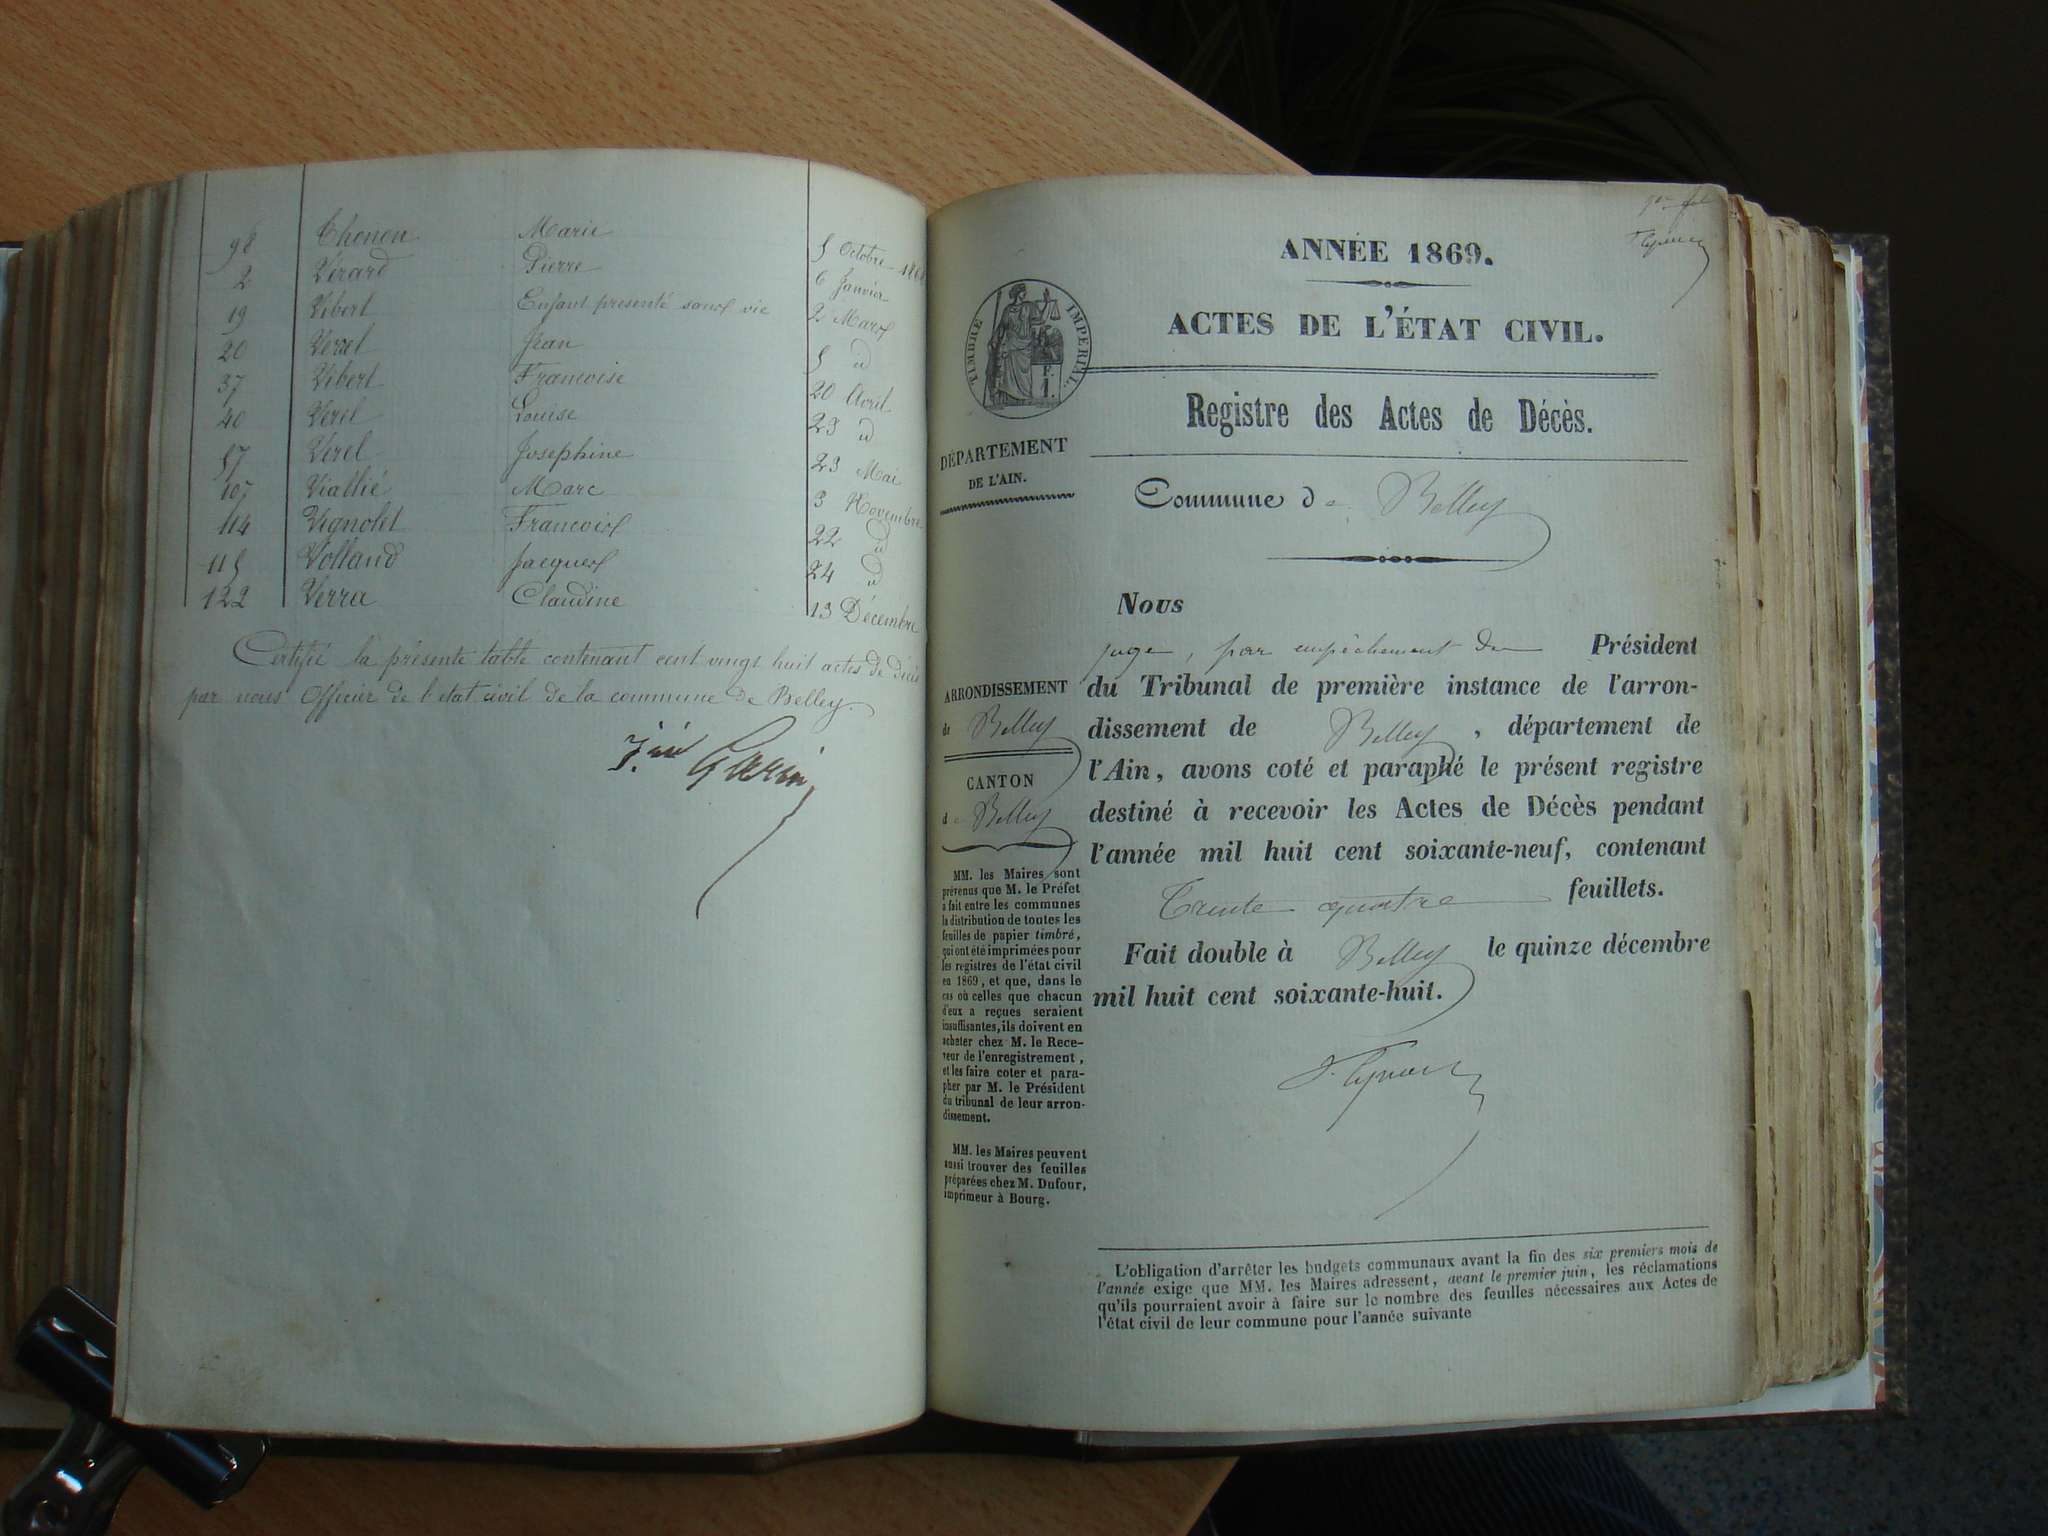 98 Thonon Marie 5 Octobre 1868
2 Vérard Pierre 6 Janvier
19 Vibert Enfant presenté sans vie 2 Mars
20 Verel Jean 5 id
37 Vibert Francoise 20 Avril
40 Verel Louise 23 id
57 Verel Josephine 23 Mai
107 Viallié Marc 3 Novembre
114 Vignolet Francois 22 id
115 Volland Jacques 24 id
122 Verra Claudine 13 Décembre
Certifié la présente table contenant cent vingt huit actes de Décès
par nous Officier de l'état civil de la commune de Belley.
Garin
ANNÉE 1869.
ACTES DE L'ÉTAT CIVIL.
TIMBRE IMPÉRIAL
Registre des Actes de Décès.
DÉPARTEMENT
DE L'AIN.
Commune de Belley
Nous
juge, par empêchement du Président
du Tribunal de première instance de l'arron-
dissement de Belley, département de
l'Ain, avons coté et paraphé le présent registre
destiné à recevoir les Actes de Décès pendant
l'année mil huit cent soixante-neuf, contenant
Trente quatre feuillets.
Fait double à Belley le quinze décembre
mil huit cent soixante-huit.
ARRONDISSEMENT
de Belley
CANTON
de Belley
MM. les Maires sont
prévenus que M. le Préfet
a fait entre les communes
la distribution de toutes les
feuilles de papier timbré,
qui ont été imprimées pour
les registres de l'état civil
en 1869, et que, dans le
cas où celles que chacun
d'eux a reçues seraient
insuffisantes, ils doivent en
acheter chez M. le Rece-
veur de l'enregistrement,
et les faire coter et para-
pher par M. le Président
du tribunal de leur arron-
dissement.
MM. les Maires peuvent
aussi trouver des feuilles
préparées chez M. Dufour,
imprimeur à Bourg.
L'obligation d'arrêter les budgets communaux avant la fin des six premiers mois de
l'année exige que MM. les Maires adressent, avant le premier juin, les réclamations
qu'ils pourraient avoir à faire sur le nombre des feuilles nécessaires aux Actes de
l'état civil de leur commune pour l'année suivante